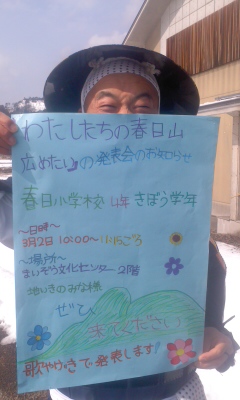 わたしたちの春日山
広めたいの発表会のお知らせ
春日小学校4年きぼう学年
〜日時〜
3月2日10:00〜
〜場所〜
まいぞう文化センター2階
地いきのみな様
ぜひ、
来てください
歌やげきで発表します!